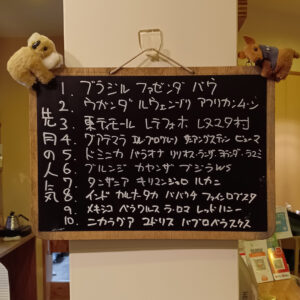 先月の人気
1. ブラジル ファゼンダ バウ
2. ウガンダ ルウェンゾリ アフリカンムーン
3. 東ティモール レテフォホ レヌスタ村
4. グアテマラ エルプログレソ サンアグスティン ピューマ
5. ドミニカ バラオナ リリオス・ランサ・ヨランダ・ラミ
6. ブルンジ カヤンザ ブジラWS
7. タンザニア キリマンジャロ ルカニ
8. インド カルナータカ ババナ ファインロブスタ
9. メキシコ ベラクルス ラ・ロマ レッドハニー
10. ニカラグア コトリス パブロベラスケス